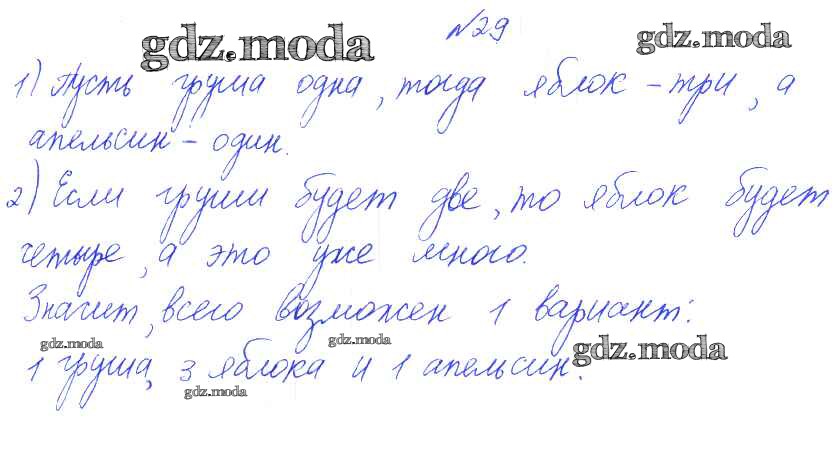 №29
gdz.moda
gdz.moda
1) Пусть груша одна, тогда яблок – три, а
апельсин – один.
2) Если груши будет две, то яблок будет
четыре, а это уже много.
Значит, всего возможен 1 вариант:
gdz.moda
gdz.moda
gdz.moda
1 груша, 3 яблока и 1 апельсин.
gdz.moda